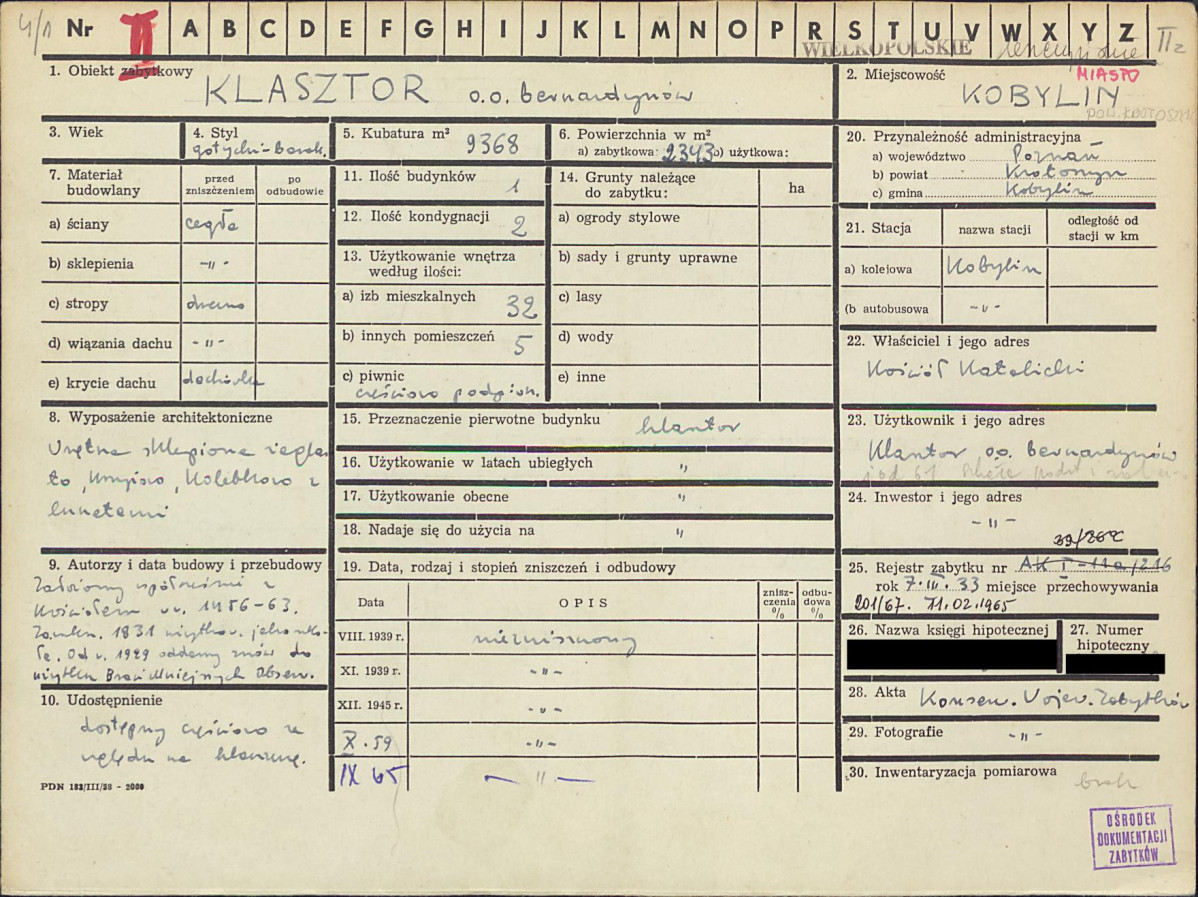 4/1 Nr II A B C D E F G H I J K L M N O P R S T U V W X Y Z II z
WIELKOPOLSKIE
1. Obiekt zabytkowy
KLASZTOR o.o. bernardynów
2. Miejscowość
MIASTO
KOBYLIN
POW. KROTOSZ.
3. Wiek
4. Styl
gotycki-barok.
5. Kubatura m²
9368
6. Powierzchnia w m²
a) zabytkowa: 2343 b) użytkowa:
20. Przynależność administracyjna
a) województwo Poznań
b) powiat Krotoszyn
c) gmina Kobylin
7. Materiał budowlany
przed zniszczeniem
po odbudowie
a) ściany cegła
b) sklepienia -„-
c) stropy drewno
d) wiązania dachu -„-
e) krycie dachu dachówka
11. Ilość budynków 1
12. Ilość kondygnacji 2
13. Użytkowanie wnętrza według ilości:
a) izb mieszkalnych 32
b) innych pomieszczeń 5
c) piwnic
częściowo podpiwn.
14. Grunty należące do zabytku:
ha
a) ogrody stylowe
b) sady i grunty uprawne
c) lasy
d) wody
e) inne
21. Stacja
nazwa stacji
odległość od stacji w km
a) kolejowa Kobylin
(b autobusowa -„-
22. Właściciel i jego adres
Kościół Katolicki
8. Wyposażenie architektoniczne
Wnętrza sklepione żaglasto, krzyżowo, kolebkowo z
lunetami
15. Przeznaczenie pierwotne budynku klasztor
16. Użytkowanie w latach ubiegłych „
17. Użytkowanie obecne „
18. Nadaje się do użycia na „
23. Użytkownik i jego adres
Klasztor o.o. bernardynów
i od 61
24. Inwestor i jego adres
-„-
9. Autorzy i data budowy i przebudowy
Założony współcześnie z
Kościołem w r. 1456-63.
Zamkn. 1831 użytkow. jako szkoła. Od r. 1929 oddany znów do
użytku Braci Mniejszych Obserw.
19. Data, rodzaj i stopień zniszczeń i odbudowy
Data
OPIS
zniszczenia %
odbudowa %
VIII. 1939 r. niezniszczony
XI. 1939 r. -„-
XII. 1945 r. -„-
X. 59 -„-
IX 65 -„-
25. Rejestr zabytku nr AK I-11a/216
rok 7.III.33 miejsce przechowywania
201/67. 11.02.1965
26. Nazwa księgi hipotecznej
27. Numer hipoteczny
28. Akta Konserw. Wojew. Zabytków
29. Fotografie -„-
30. Inwentaryzacja pomiarowa brak
10. Udostępnienie
dostępny częściowo ze
względu na klauzurę.
PDN 183/III/58 - 2000
OŚRODEK
DOKUMENTACJI
ZABYTKÓW